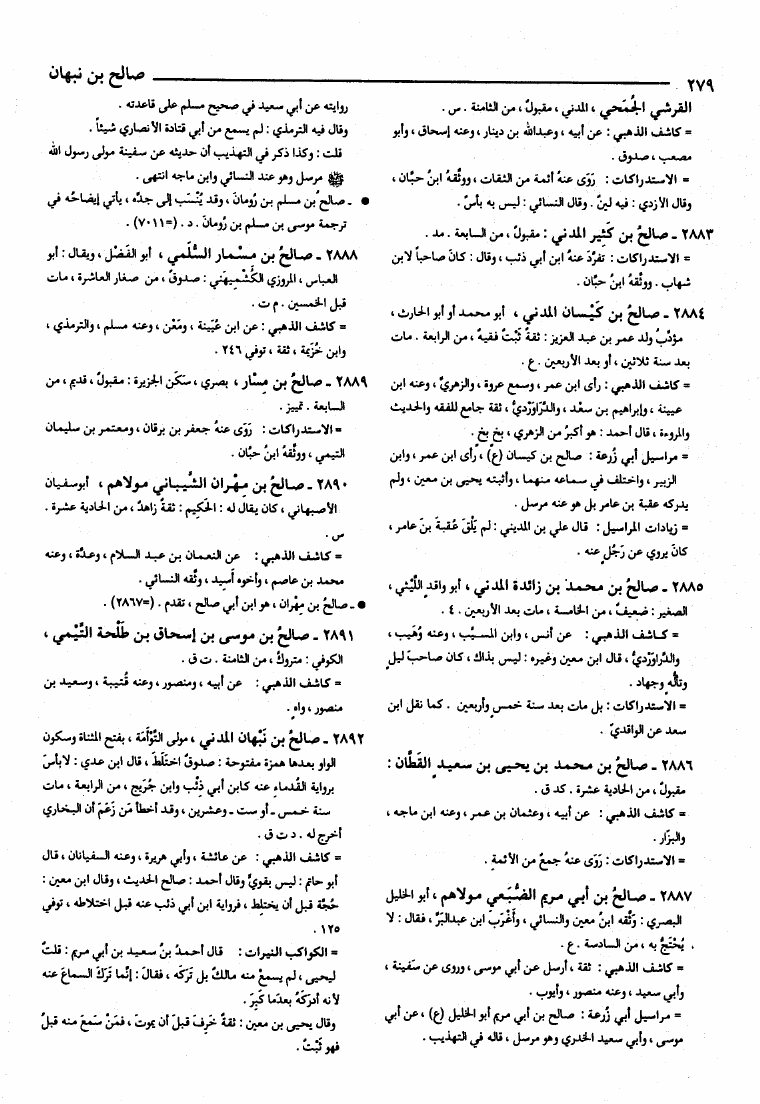 ٢٧٩ صالح بن نبهان
القرشي الجُمَحي ، المدني ، مقبولٌ ، من الثامنة . س .
= كاشف الذهبي : عن أبيه ، وعبدالله بن دينار ، وعنه إسحاق ، وأبو
مصعب ، صدوق .
= الاستدراكات : رَوَى عنهُ أئمة من الثقات ، ووثَّقهُ ابنُ حبَّان ،
وقال الأزدي : فيه لينٌ . وقال النسائي : ليس به بأسٌ .
٢٨٨٣ ـ صالحُ بن كَثِير المدني : مقبول ، من السابعة . مد .
= الاستدراكات : تفرَّدَ عنهُ ابن أبي ذئب ، وقال : كانَ صاحباً لابن
شهاب . ووثَّقهُ ابنُ حبَّان .
٢٨٨٤ ـ صالحُ بن كَيْسان المدني ، أبو محمد أو أبو الحارث ،
مؤدِّبُ ولد عمر بن عبد العزيز : ثقةٌ ثَبْتٌ فقيهٌ ، من الرابعة . مات
بعد سنة ثلاثين ، أو بعد الأربعين . ع .
= كاشف الذهبي : رأى ابن عمر ، وسمع عروة ، والزهريَّ ، وعنه ابن
عيينة ، وإبراهيم بن سعْد ، والدَّرَاوَرْديُّ ، ثقة جامع للفقه والحديث
والمروءة ، قال أحمد : هو أكبرُ من الزهري ، بخ بخ .
= مراسيل أبي زُرعة : صالح بن كيسان (ع) ، رأى ابن عمر ، وابن
الزبير ، واختلف في سماعه منهما ، وأثبته يحيى بن معين ، ولم
يدركه عقبة بن عامر بل هو عنه مرسل .
= زيادات المراسيل : قال علي بن المديني : لم يَلْقَ عُقبةَ بنَ عامر ،
كانَ يروي عن رَجُلٍ عنه .
٢٨٨٥ ـ صالحُ بن محمد بن زائدة المدني ، أبو واقدٍ اللَّيْثي ،
الصغير : ضعيفٌ ، من الخامسة ، مات بعد الأربعين . ٤ .
= كاشف الذهبي : عن أنس ، وابن المسيَّب ، وعنه وُهَيب ،
والدَّرَاوَرْديُّ ، قال ابن معين وغيره : ليس بذاك ، كان صاحبَ ليلٍ
وتألُّهٍ وجهاد .
= الاستدراكات : بل مات بعد سنة خمسٍ وأربعين . كما نقل ابن
سعد عن الواقديِّ .
٢٨٨٦ ـ صالحُ بن محمد بن يحيى بن سعيدٍ القَطَّان :
مقبولٌ ، من الحادية عشرة . كد ق .
= كاشف الذهبي : عن أبيه ، وعثمان بن عمر ، وعنه ابن ماجه ،
والبزَّار .
= الاستدراكات : رَوَى عنهُ جمعٌ من الأئمةِ .
٢٨٨٧ ـ صالحُ بن أبي مريم الضُّبَعي مولاهم ، أبو الخليل
البصري : وَثَّقه ابنُ معين والنسائي ، وأَغْرَبَ ابن عبدالبَرِّ ، فقال : لا
يُحْتَجُّ به ، من السادسة . ع .
= كاشف الذهبي : ثقة ، أرسل عن أبي موسى ، وروى عن سَفينة ،
وأبي سعيد ، وعنه منصور ، وأيوب .
= مراسيل أبي زُرعة : صالح بن أبي مريم أبو الخليل (ع) ، عن أبي
موسى ، وأبي سعيد الخدري وهو مرسل ، قاله في التهذيب .
روايته عن أبي سعيد في صحيح مسلم على قاعدته .
وقال فيه الترمذي : لم يسمع من أبي قتادة الأنصاري شيئاً .
قلت : وكذا ذكر في التهذيب أن حديثه عن سفينة مولى رسول الله
ﷺ مرسل وهو عند النسائي وابن ماجه انتهى .
● ـ صالحُ بن مسلم بن رُومانَ ، وقد يُنْسَب إلى جدِّه ، يأتي إيضاحُه في
ترجمة موسى بن مسلم بن رُومان . د . (=٧٠١١) .
٢٨٨٨ ـ صالحُ بن مِسْمار السُّلَمي ، أبو الفَضْل ، ويقال : أبو
العباس ، المروزي الكُشْمِيهَني : صدوقٌ ، من صغار العاشرة ، مات
قبل الخمسين . م ت .
= كاشف الذهبي : عن ابن عُيَينة ، ومَعْن ، وعنه مسلم ، والترمذي ،
وابن خُزَيمة ، ثقة ، توفي ٢٤٦ .
٢٨٨٩ ـ صالحُ بن مِسْمار ، بصري ، سَكَن الجزيرة : مقبولٌ ، قديم ، من
السابعة . تمييز .
= الاستدراكات : رَوَى عنهُ جعفر بن برقان ، ومعتمر بن سليمان
التيمي ، ووثَّقهُ ابنُ حبَّان .
٢٨٩٠ ـ صالحُ بن مِهْران الشَّيباني مولاهم ، أبوسفيان
الأصبهاني ، كان يقال له : الحَكِيم : ثقةٌ زاهدٌ ، من الحادية عشرة .
س .
= كاشف الذهبي : عن النعمان بن عبد السلام ، وعدَّة ، وعنه
محمد بن عاصم ، وأخوه أَسِيد ، وثَّقه النسائي .
● ـ صالحُ بن مِهْران ، هو ابن أبي صالح ، تقدم . (=٢٨٦٧) .
٢٨٩١ ـ صالحُ بن موسى بن إسحاق بن طَلْحة التَّيْمي ،
الكوفي : متروكٌ ، من الثامنة . ت ق .
= كاشف الذهبي : عن أبيه ، ومنصور ، وعنه قُتيبة ، وسعيد بن
منصور ، واهٍ .
٢٨٩٢ ـ صالحُ بن نَبْهان المدني ، مولى التَّوْأَمَة ، بفتح المثناة وسكون
الواو بعدها همزة مفتوحة : صدوقٌ اختَلَطَ ، قال ابن عدي : لا بأسَ
برواية القُدماءِ عنه كابن أبي ذِئْبٍ وابن جُرَيج ، من الرابعة ، مات
سنة خمس ـ أو ست ـ وعشرين ، وقد أخطأَ مَن زَعَمَ أن البخاري
أخرج له . د ت ق .
= كاشف الذهبي : عن عائشة ، وأبي هريرة ، وعنه السفيانان ، قال
أبو حاتم : ليس بقويٍّ وقال أحمد : صالح الحديث ، وقال ابن معين :
حجَّة قبل أن يختلِط ، فرواية ابن أبي ذئب عنه قبل اختلاطه ، توفي
١٢٥ .
= الكواكب النيرات : قال أحمدُ بنُ سعيد بن أبي مريم : قلتُ
ليحيى ، لم يسمعْ منه مالكٌ بل تركه ، فقالَ : إنَّما تركَ السماعَ عنه
لأنه أدركَهُ بعدَما كَبِرَ .
وقال يحيى بن معين : ثقةٌ خَرِفَ قبلَ أن يموتَ ، فمَنْ سَمِعَ منه قبلُ
فهو ثَبْتٌ .